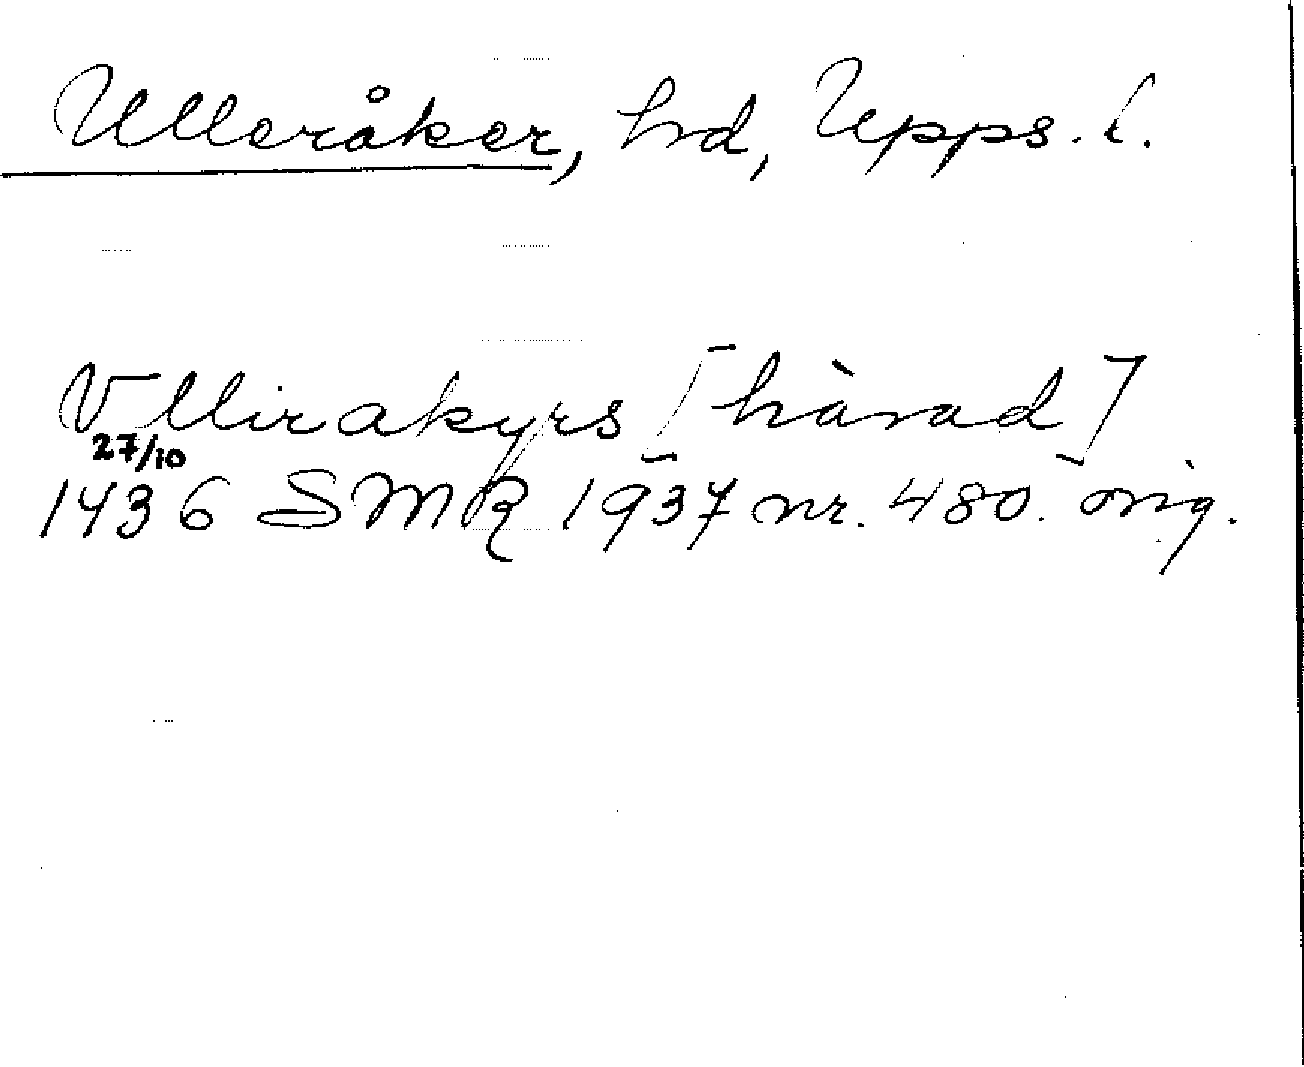 Ulleråker, hd, Upps. l.
Vllirakyrs [hàrad]
27/10
1436 SMR 1937 nr. 480. orig.